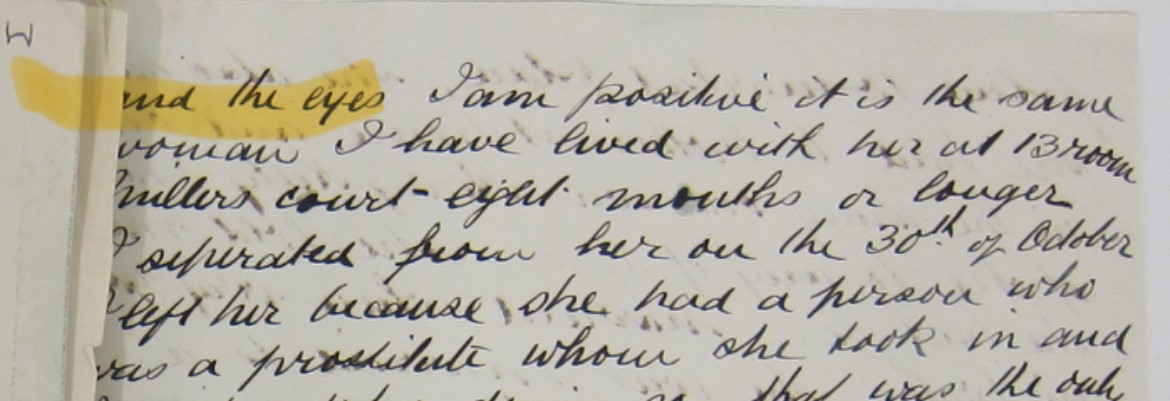 and the eyes I am positive it is the same
woman I have lived with her at 13 room
Millers court eight months or longer
I seperated from her on the 30th of October
I left her because she had a person who
was a prostitute whom she took in and
that was the only